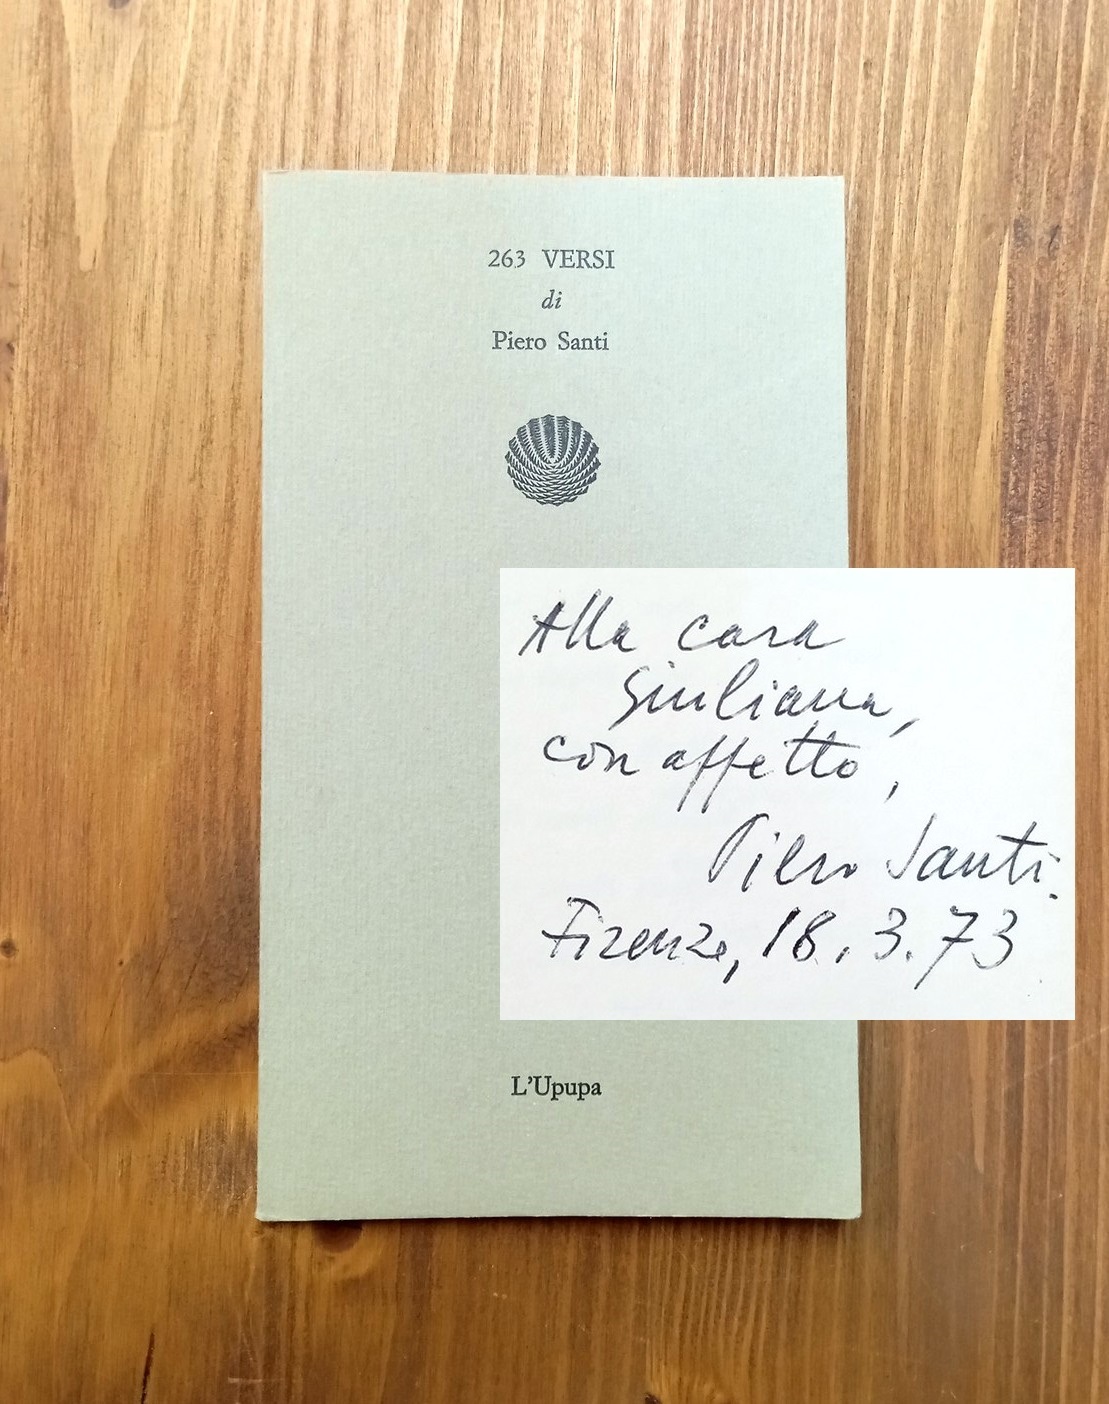 263 VERSI
di
Piero Santi
Alla cara
Giuliana,
con affetto,
Piero Santi.
Firenze, 18.3.73
L'Upupa